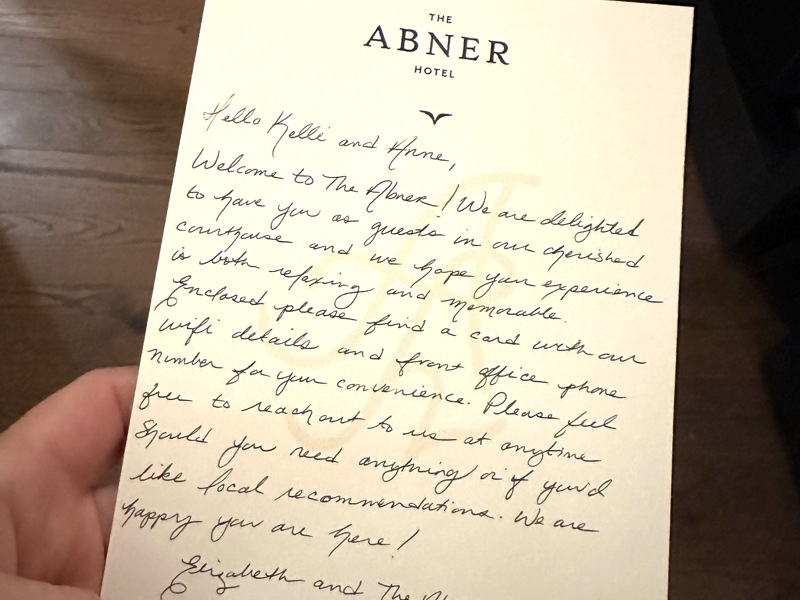 THE
ABNER
HOTEL
Hello Kelli and Anne,
Welcome to The Abner! We are delighted
to have you as guests in our cherished
courthouse and we hope your experience
is both relaxing and memorable.
Enclosed please find a card with our
wifi details and front office phone
number for your convenience. Please feel
free to reach out to us at anytime
should you need anything or if you'd
like local recommendations. We are
happy you are here!
Elizabeth and The